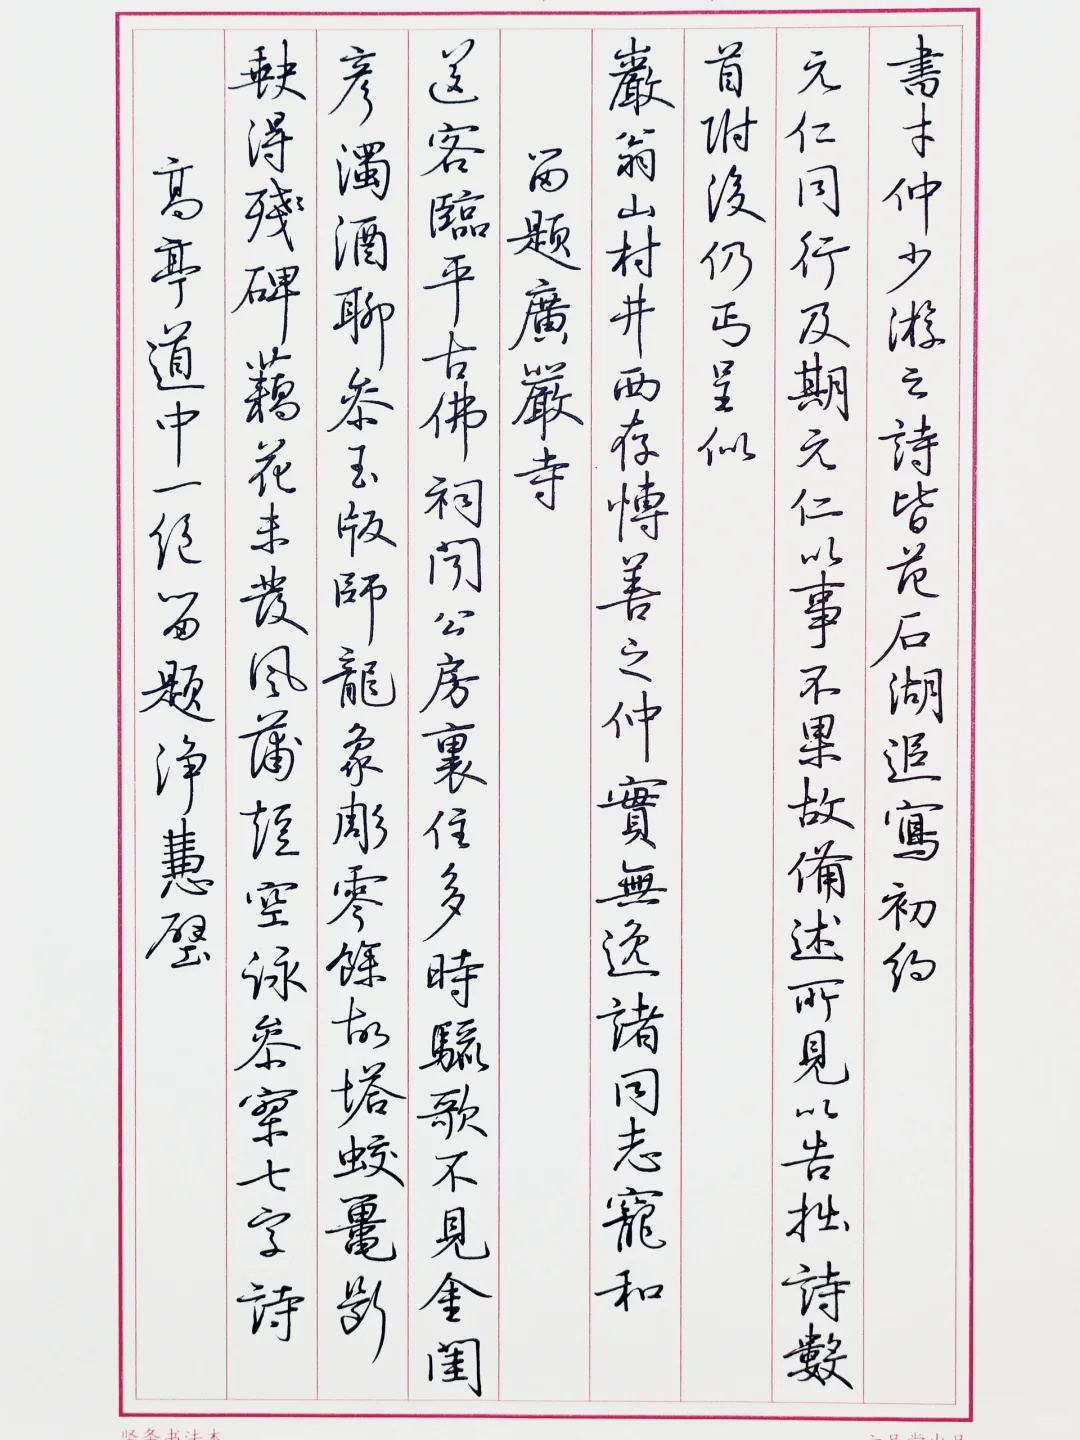 書才仲少游之詩皆范石湖追寫初約
元仁同行及期元仁以事不果故備述所見以告拙詩數
首附後仍丐呈似
嚴翁山村井西存愽善之仲實無逸諸同志寵和
留題廣嚴寺
送客臨平古佛祠公房裏住多時驪歌不見金閨
彥濁酒聊參玉版師龍象彫零餘故塔蛟鼉斷
缺得殘碑藕花未發風蒲短空詠參寥七字詩
高亭道中一絕留題淨慧壁